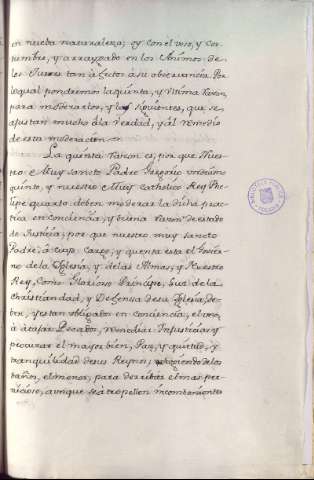 en nueba naturaleza; oy con el uso, y cos-
tumbre, y arraygado en los Animos de-
los Jueces tan afectos a su observancia. Por
lo qual pondremos la quinta, y ultima razon,
para moderarlos, y las siguientes, que se
ajustan mucho ala verdad, y al remedio
de esta moderacion
La quinta razon es, por que Nues-
tro Muy sancto Padre Gregorio
quinto, y nuestro Muy Catholico Rey Phe-
lipe quarto deben moderar la dicha prac-
tica en conciencia, y buena razon de estado
de Justicia; por que nuestro muy sancto
Padre, a cuyo cargo, y quenta esta el Govier-
no dela Yglesia, y delas Almas, y Nuestro
Rey, como Glorioso Principe, Luz de la
Christiandad, y Defensa desu Yglesia, de-
ben, y estan obligados en conciencia, el uno,
a atajar Pecados, remediar Injusticias y
procurar el mayor bien, Paz, y quietud, y
tranquilidad desus Reynos; delos
daños, el menos, para derribar el mas per-
nicioso, aunque se atropellen incombenientes